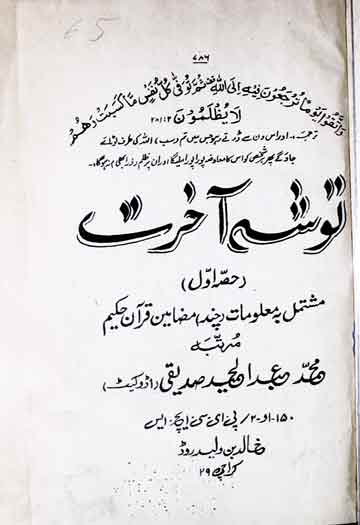 ۷۸۶
وَاتَّقُوْا يَوْمًا تُرْجَعُوْنَ فِيْهِ اِلَى اللّٰهِ ثُمَّ تُوَفّٰى كُلُّ نَفْسٍ مَّا كَسَبَتْ وَهُمْ
لَا يُظْلَمُوْنَ ۲۸۱:۲
ترجمہ:۔ اور اس دن سے ڈرتے رہو جس میں تم (سب) اللہ کی طرف لوٹائے
جاؤ گے پھر ہر شخص کو اس کا معاوضہ پورا پورا ملیگا اور ان پر ظلم (ذرا بھی) نہ ہو گا۔
توشہ آخرت
(حصہ اوّل)
مشتمل بہ معلومات (چند) مضامین قرآن حکیم
مرتبہ
محمد عبدالحید صدیقی (اڈوکیٹ)
۱۵۰-او-۲/ پی ای سی ایچ ایس
خالد بن ولید روڈ
کراچی ۲۹